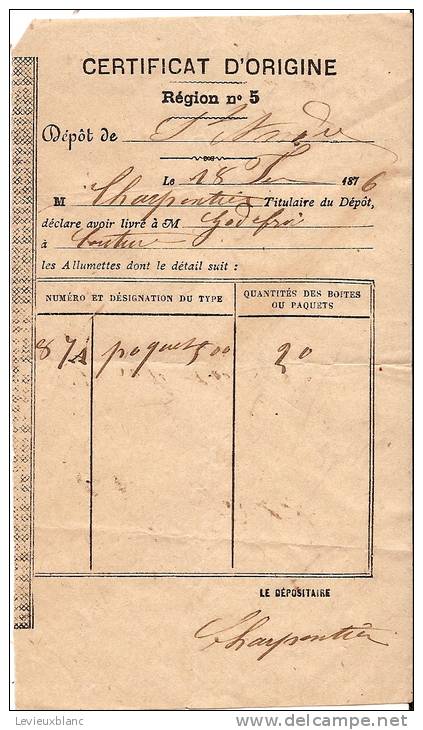 CERTIFICAT D'ORIGINE
Région nº 5
Dépôt de St André
Le 18 1876
M Charpentier Titulaire du Dépôt,
déclare avoir livré à M Godefroi
à
les Allumettes dont le détail suit :
NUMÉRO ET DÉSIGNATION DU TYPE
QUANTITÉS DES BOITES OU PAQUETS
87A paquet 500 20
LE DÉPOSITAIRE
Charpentier
Levieuxblanc
delcampe.net